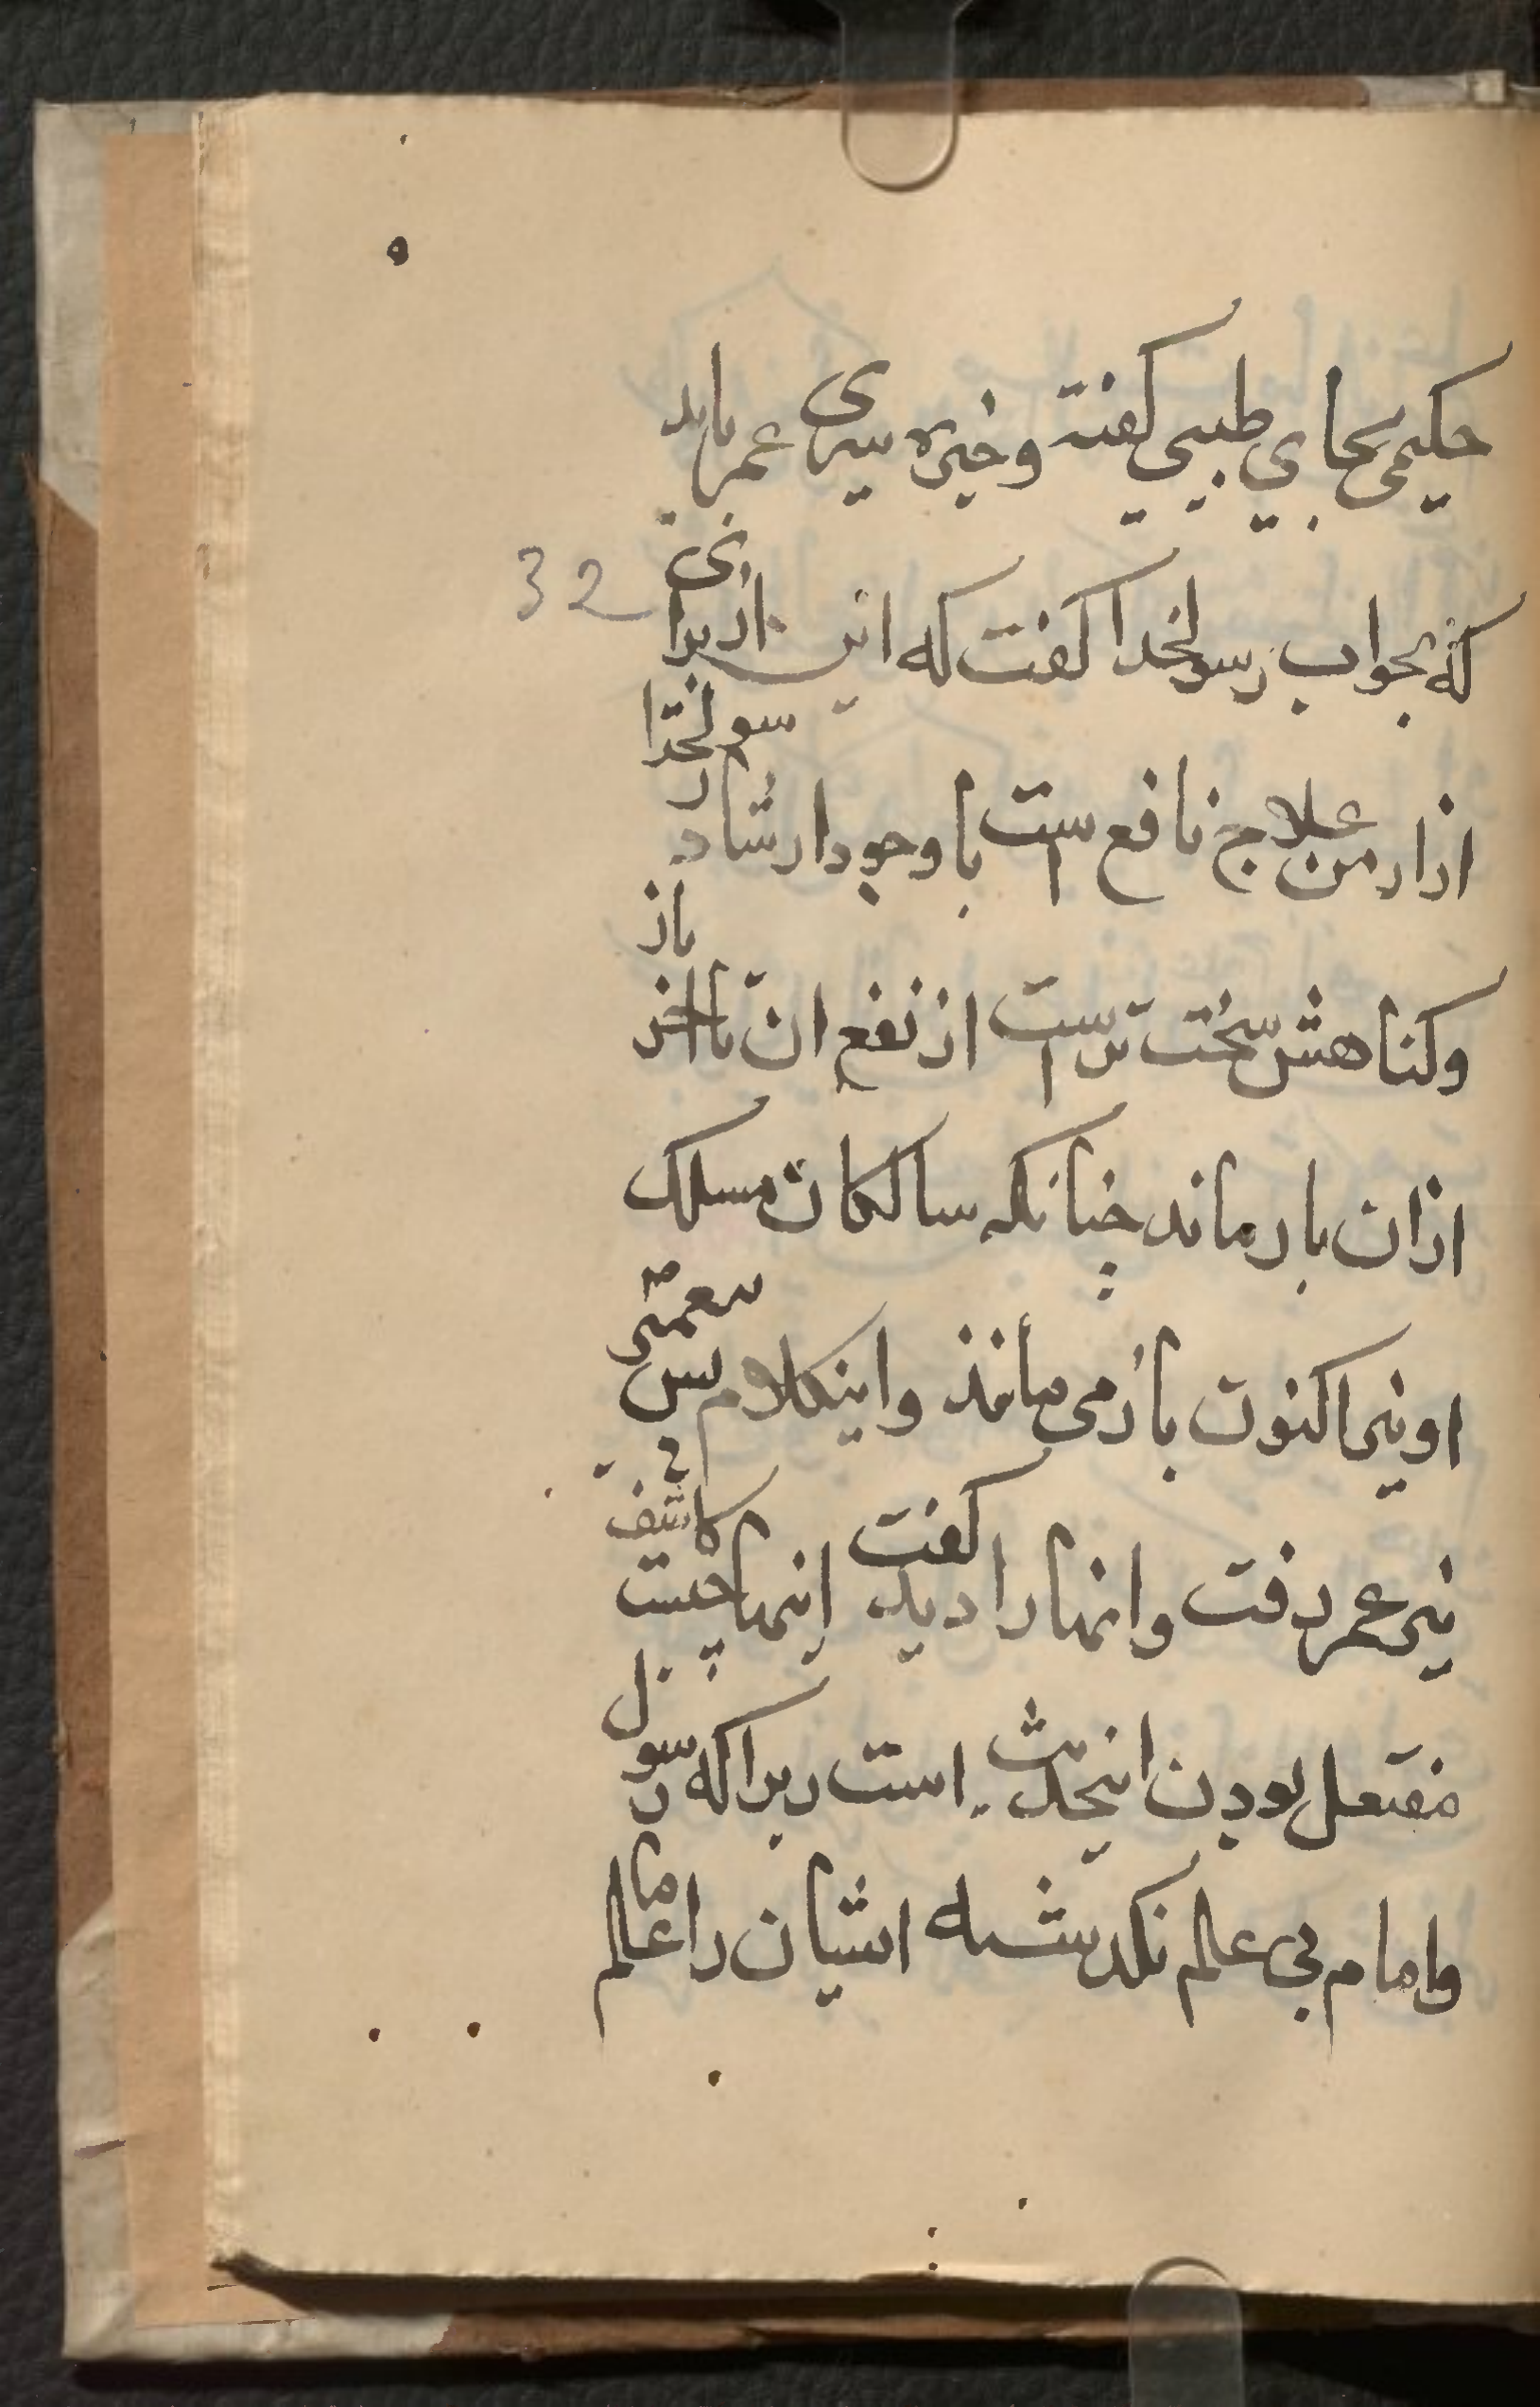 حکیمی بجای طبیبی کفته و خیره سیری عمر باید
که بجواب رسولخدا کفت که این از برای
ازار من علاج نافع است با وجود ارشاد رسولخدا
وکناهش سخت تر است از نفع ان تا اخر باز
ازان باز ماند چنانکه سالکان مسلک
او نیر اکنون باز می مانند و اینکلام
نیر عمر رفت وانها را دید کفت اینها چیست کاشف
مفتعل بودن اینحدیث است زیرا که رسول
وامام بی علم نکدشته اشیان را عالم ما
32